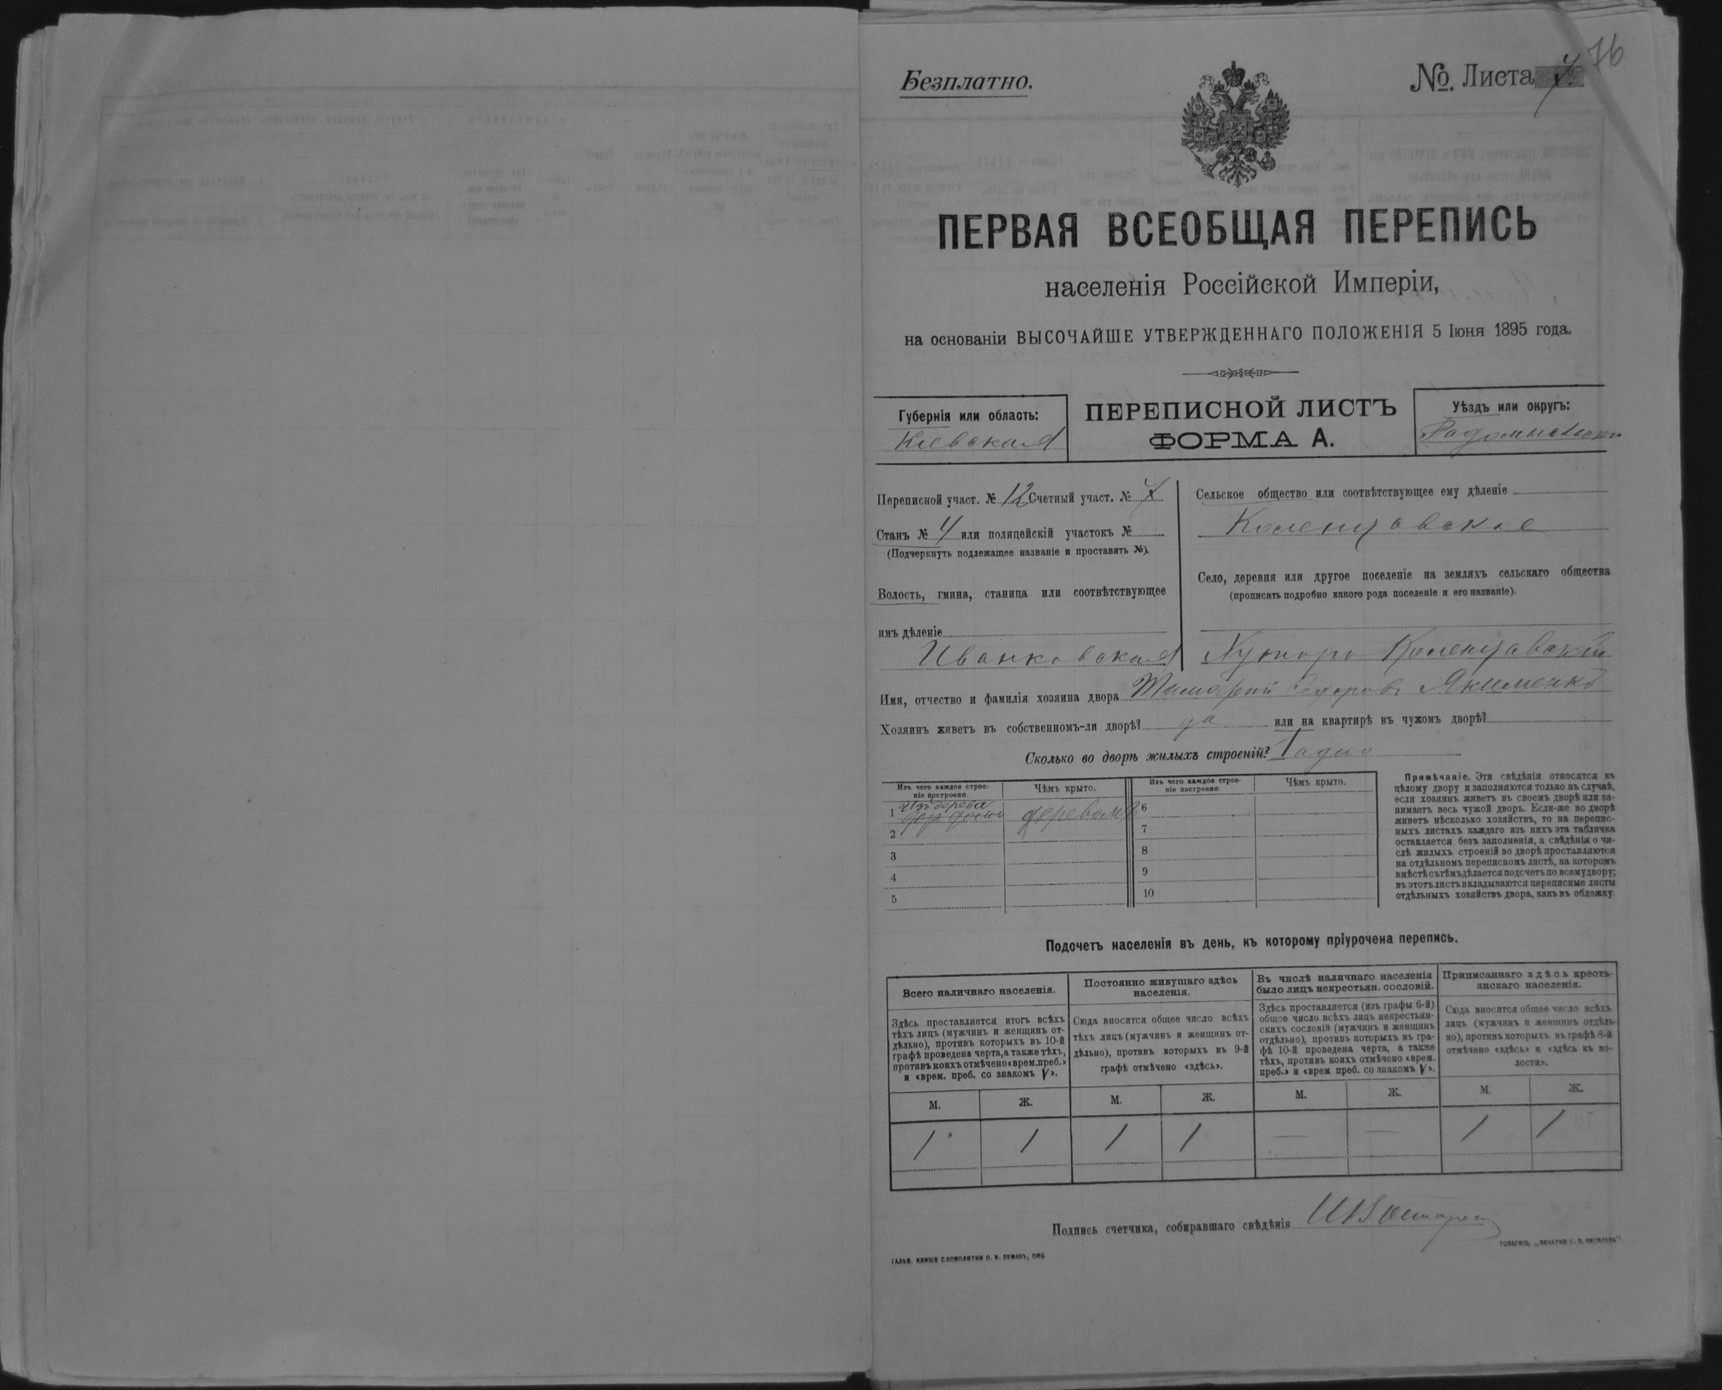 76
Безплатно.
№ Листа
ПЕРВАЯ ВСЕОБЩАЯ ПЕРЕПИСЬ
населенія Россійской Имперіи,
на основаніи ВЫСОЧАЙШЕ УТВЕРЖДЕННАГО ПОЛОЖЕНІЯ 5 Іюня 1895 года.
Губернія или область:
Кіевская
ПЕРЕПИСНОЙ ЛИСТЪ
ФОРМА А.
Уѣздъ или округъ:
Радомысльскій
Переписной участ. № 12 Счетный участ. №
Станъ № 4 или полицейскій участокъ №
(Подчеркнуть подлежащее названіе и проставить №).
Волость, гмина, станица или соотвѣтствующее
имъ дѣленіе
Иванковская
Сельское общество или соотвѣтствующее ему дѣленіе
Коленцовское
Село, деревня или другое поселеніе на земляхъ сельскаго общества
(прописать подробно какого рода поселеніе и его названіе).
Хуторъ Коленцовскій
Имя, отчество и фамилія хозяина двора Тимофей Якименко
Хозяинъ живетъ въ собственномъ-ли дворѣ? да или на квартирѣ въ чужомъ дворѣ?
Сколько во дворѣ жилыхъ строеній? 1
Изъ чего каждое строе-
ніе построено.
Чѣмъ крыто.
Изъ чего каждое строе-
ніе построено.
Чѣмъ крыто.
1 Изъ дерева
деревомъ
6
2
7
3
8
4
9
5
10
Примѣчаніе. Эти свѣдѣнія относятся къ
цѣлому двору и заполняются только въ случаѣ,
если хозяинъ живетъ въ своемъ дворѣ или за-
нимаетъ весь чужой дворъ. Если-же во дворѣ
живетъ нѣсколько хозяйствъ, то на перепис-
ныхъ листахъ каждаго изъ нихъ эта табличка
оставляется безъ заполненія, а свѣдѣнія о чи-
слѣ жилыхъ строеній во дворѣ проставляются
на отдѣльномъ переписномъ листѣ, на которомъ
вмѣстѣ съ тѣмъ дѣлается подсчетъ по всему двору;
въ этотъ листъ вкладываются переписные листы
отдѣльныхъ хозяйствъ двора, какъ въ обложку.
Подсчетъ населенія въ день, къ которому пріурочена перепись.
Всего наличнаго населенія.
Здѣсь проставляется итогъ всѣхъ
тѣхъ лицъ (мужчинъ и женщинъ от-
дѣльно), противъ которыхъ въ 10-й
графѣ проведена черта, а также тѣхъ,
противъ коихъ отмѣчено «врем. преб.»
и «врем. преб. со знакомъ V».
Постоянно живущаго здѣсь
населенія.
Сюда вносится общее число всѣхъ
тѣхъ лицъ (мужчинъ и женщинъ от-
дѣльно), противъ которыхъ въ 9-й
графѣ отмѣчено «здѣсь».
Въ числѣ наличнаго населенія
было лицъ некрестьян. сословій.
Здѣсь проставляется (изъ графы 6-й)
общее число всѣхъ лицъ некрестьян-
скихъ сословій (мужчинъ и женщинъ
отдѣльно), противъ которыхъ въ гра-
фѣ 10-й проведена черта, а также
тѣхъ, противъ коихъ отмѣчено «врем.
преб.» и «врем преб. со знакомъ V».
Приписаннаго здѣсь кресть-
янскаго населенія.
Сюда вносится общее число всѣхъ
лицъ (мужчинъ и женщинъ отдѣль-
но), противъ которыхъ въ графѣ 8-й
отмѣчено «здѣсь» и «здѣсь въ во-
лости».
М. Ж. М. Ж. М. Ж. М. Ж.
1 1 1 1 — — 1 1
Подпись счетчика, собиравшаго свѣдѣнія
ГАЛЬВ. КЛИШЕ СЛОВОЛИТНИ О. И. ЛЕМАНЪ, СПБ.
ТОВАРИЩ. „ПЕЧАТНЯ С. П. ЯКОВЛЕВА"